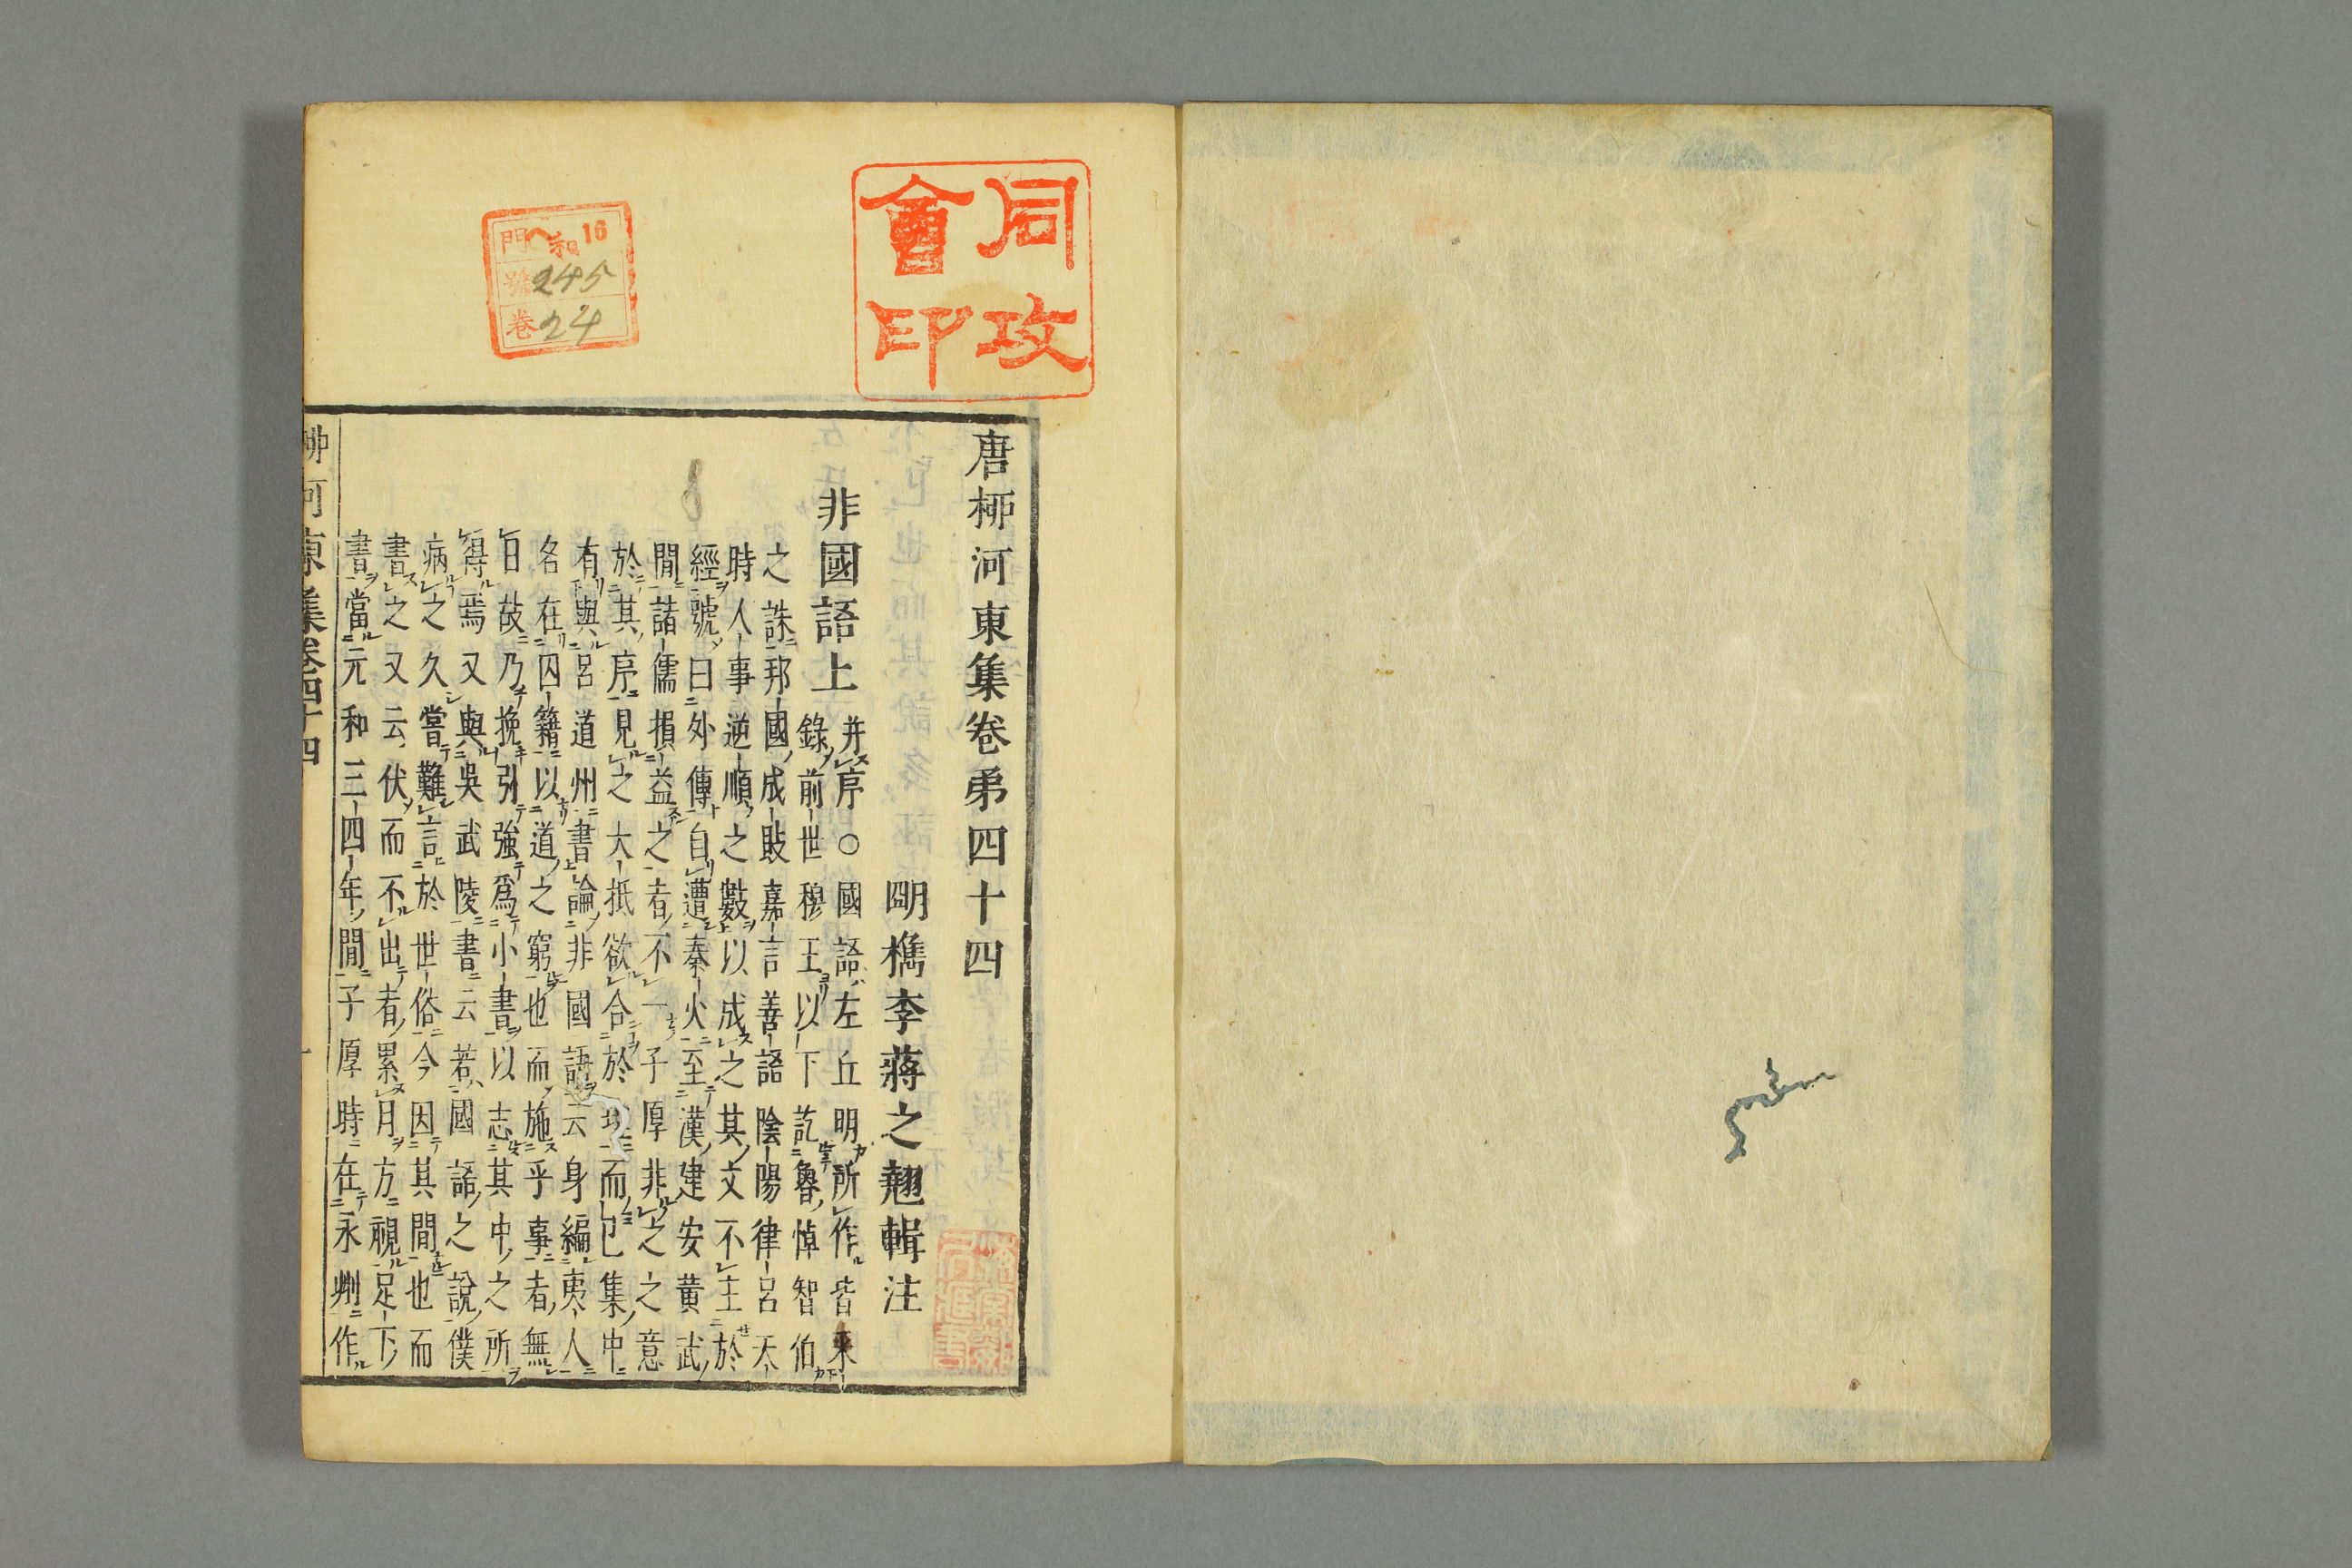 同攻會印
門 ヘ 和 16
號 245
卷 24
唐柳河東集卷弟四十四
明檇李蔣之翹輯注
非國語上
并序○國語左丘明所作皆采
錄前世穆王以下訖魯悼智伯
之誅邦國成敗嘉言善語陰陽律呂天
時人事逆順之數以成之其文不主於
經號曰外傳自遭秦火至漢建安黄武
閒諸儒損益之者不一子厚非之之意
於其序見之大抵欲合於而已集中
有與呂道州書論非國語云身編夷人
名在囚籍以道之窮也而施乎事者無
日故乃挽引強爲小書以志其中之所
得焉又與吳武陵書云若國語之說僕
病之久嘗難言於世俗今因其閒也而
書之又云伏而不出者累月方視足下
書當元和三四年閒子厚時在永州作
柳河東集卷四十四